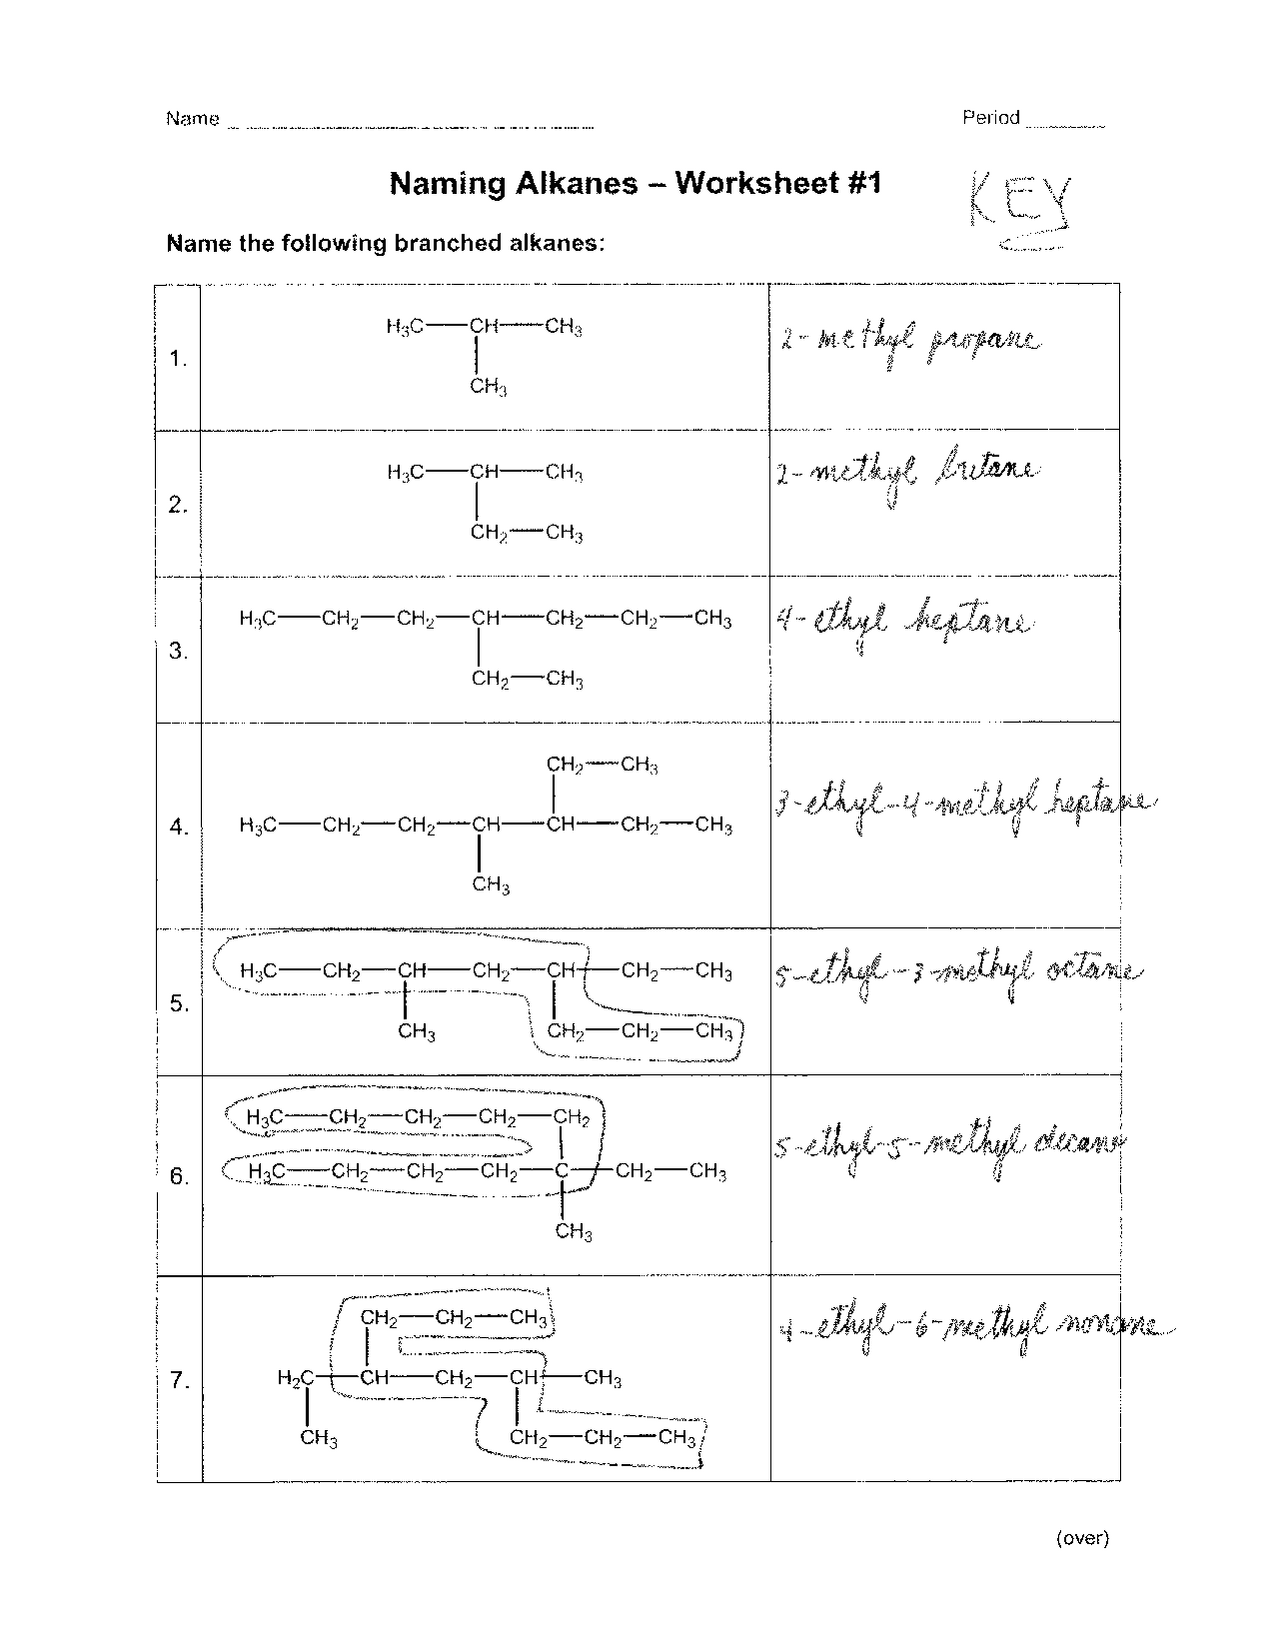 Name
Period
Naming Alkanes – Worksheet #1
KEY
Name the following branched alkanes:
1.
H₃C—CH—CH₃
CH₃
2-methyl propane
2.
H₃C—CH—CH₃
CH₂—CH₃
2-methyl butane
3.
H₃C—CH₂—CH₂—CH—CH₂—CH₂—CH₃
CH₂—CH₃
4-ethyl heptane
4.
CH₂—CH₃
H₃C—CH₂—CH₂—CH—CH—CH₂—CH₃
CH₃
3-ethyl-4-methyl heptane
5.
H₃C—CH₂—CH—CH₂—CH—CH₂—CH₃
CH₃ CH₂—CH₂—CH₃
5-ethyl-3-methyl octane
6.
H₃C—CH₂—CH₂—CH₂—CH₂
H₃C—CH₂—CH₂—CH₂—C—CH₂—CH₃
CH₃
5-ethyl-5-methyl decane
7.
CH₂—CH₂—CH₃
H₂C—CH—CH₂—CH—CH₃
CH₃ CH₂—CH₂—CH₃
4-ethyl-6-methyl nonane
(over)